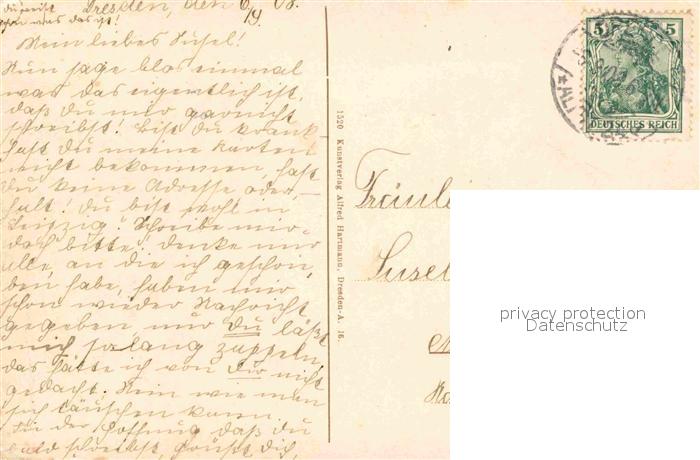 Du weißt
schon was das ist!
Dresden, den 6/9. 08.
Mein liebes Susel!
Nun sage blos einmal
was das eigentlich ist,
daß du mir garnicht
schreibst! Bist du krank
hast du meine Karten
nicht bekommen, hast
du keine Adresse oder, –
halt! du bist wohl in
Leipzig? Schreibe mir
doch bitte! denke nur
alle, an die ich geschrie,
ben habe, haben mir
schon wieder Nachricht
gegeben nur du läßt
mich so lang zappeln,
das hätte ich von dir nicht
gedacht. Nein wie man
sich täuschen kann.
In der Hoffnung daß du
bald schreibst, grüßt dich,
1520 Kunstverlag Alfred Hartmann, Dresden-A. 16.
5 5
DEUTSCHES REICH
Fräulei
Susel
privacy protection
Datenschutz